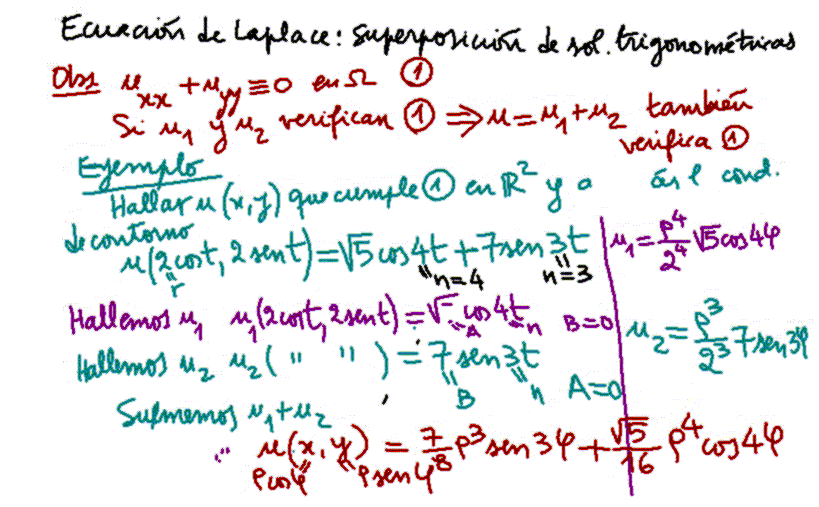 Ecuación de Laplace: superposición de sol. trigonométricas
Obs: u_xx + u_yy ≡ 0 en Ω ①
Si u₁ y u₂ verifican ① ⟹ u = u₁ + u₂ también
verifica ①
Ejemplo
Hallar u(x,y) que cumple ① en ℝ² y a l cond.
de contorno
u(2cost, 2sent) = √5 cos4t + 7sen3t
r n=4 n=3
u₁ = ρ⁴/2⁴ √5 cos4φ
Hallemos u₁ u₁(2cost, 2sent) = √ cos4t B=0
A n
u₂ = ρ³/2³ 7sen3φ
Hallemos u₂ u₂( " " ) = 7sen3t
B n A=0
Sumemos u₁+u₂
u(x,y) = 7/8 ρ³ sen3φ + √5/16 ρ⁴ cos4φ
ρcosφ ρsenφ